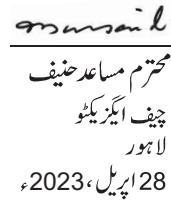 محترم مساعد حنیف
چیف ایگزیکٹو
لاہور
28 اپریل، 2023ء